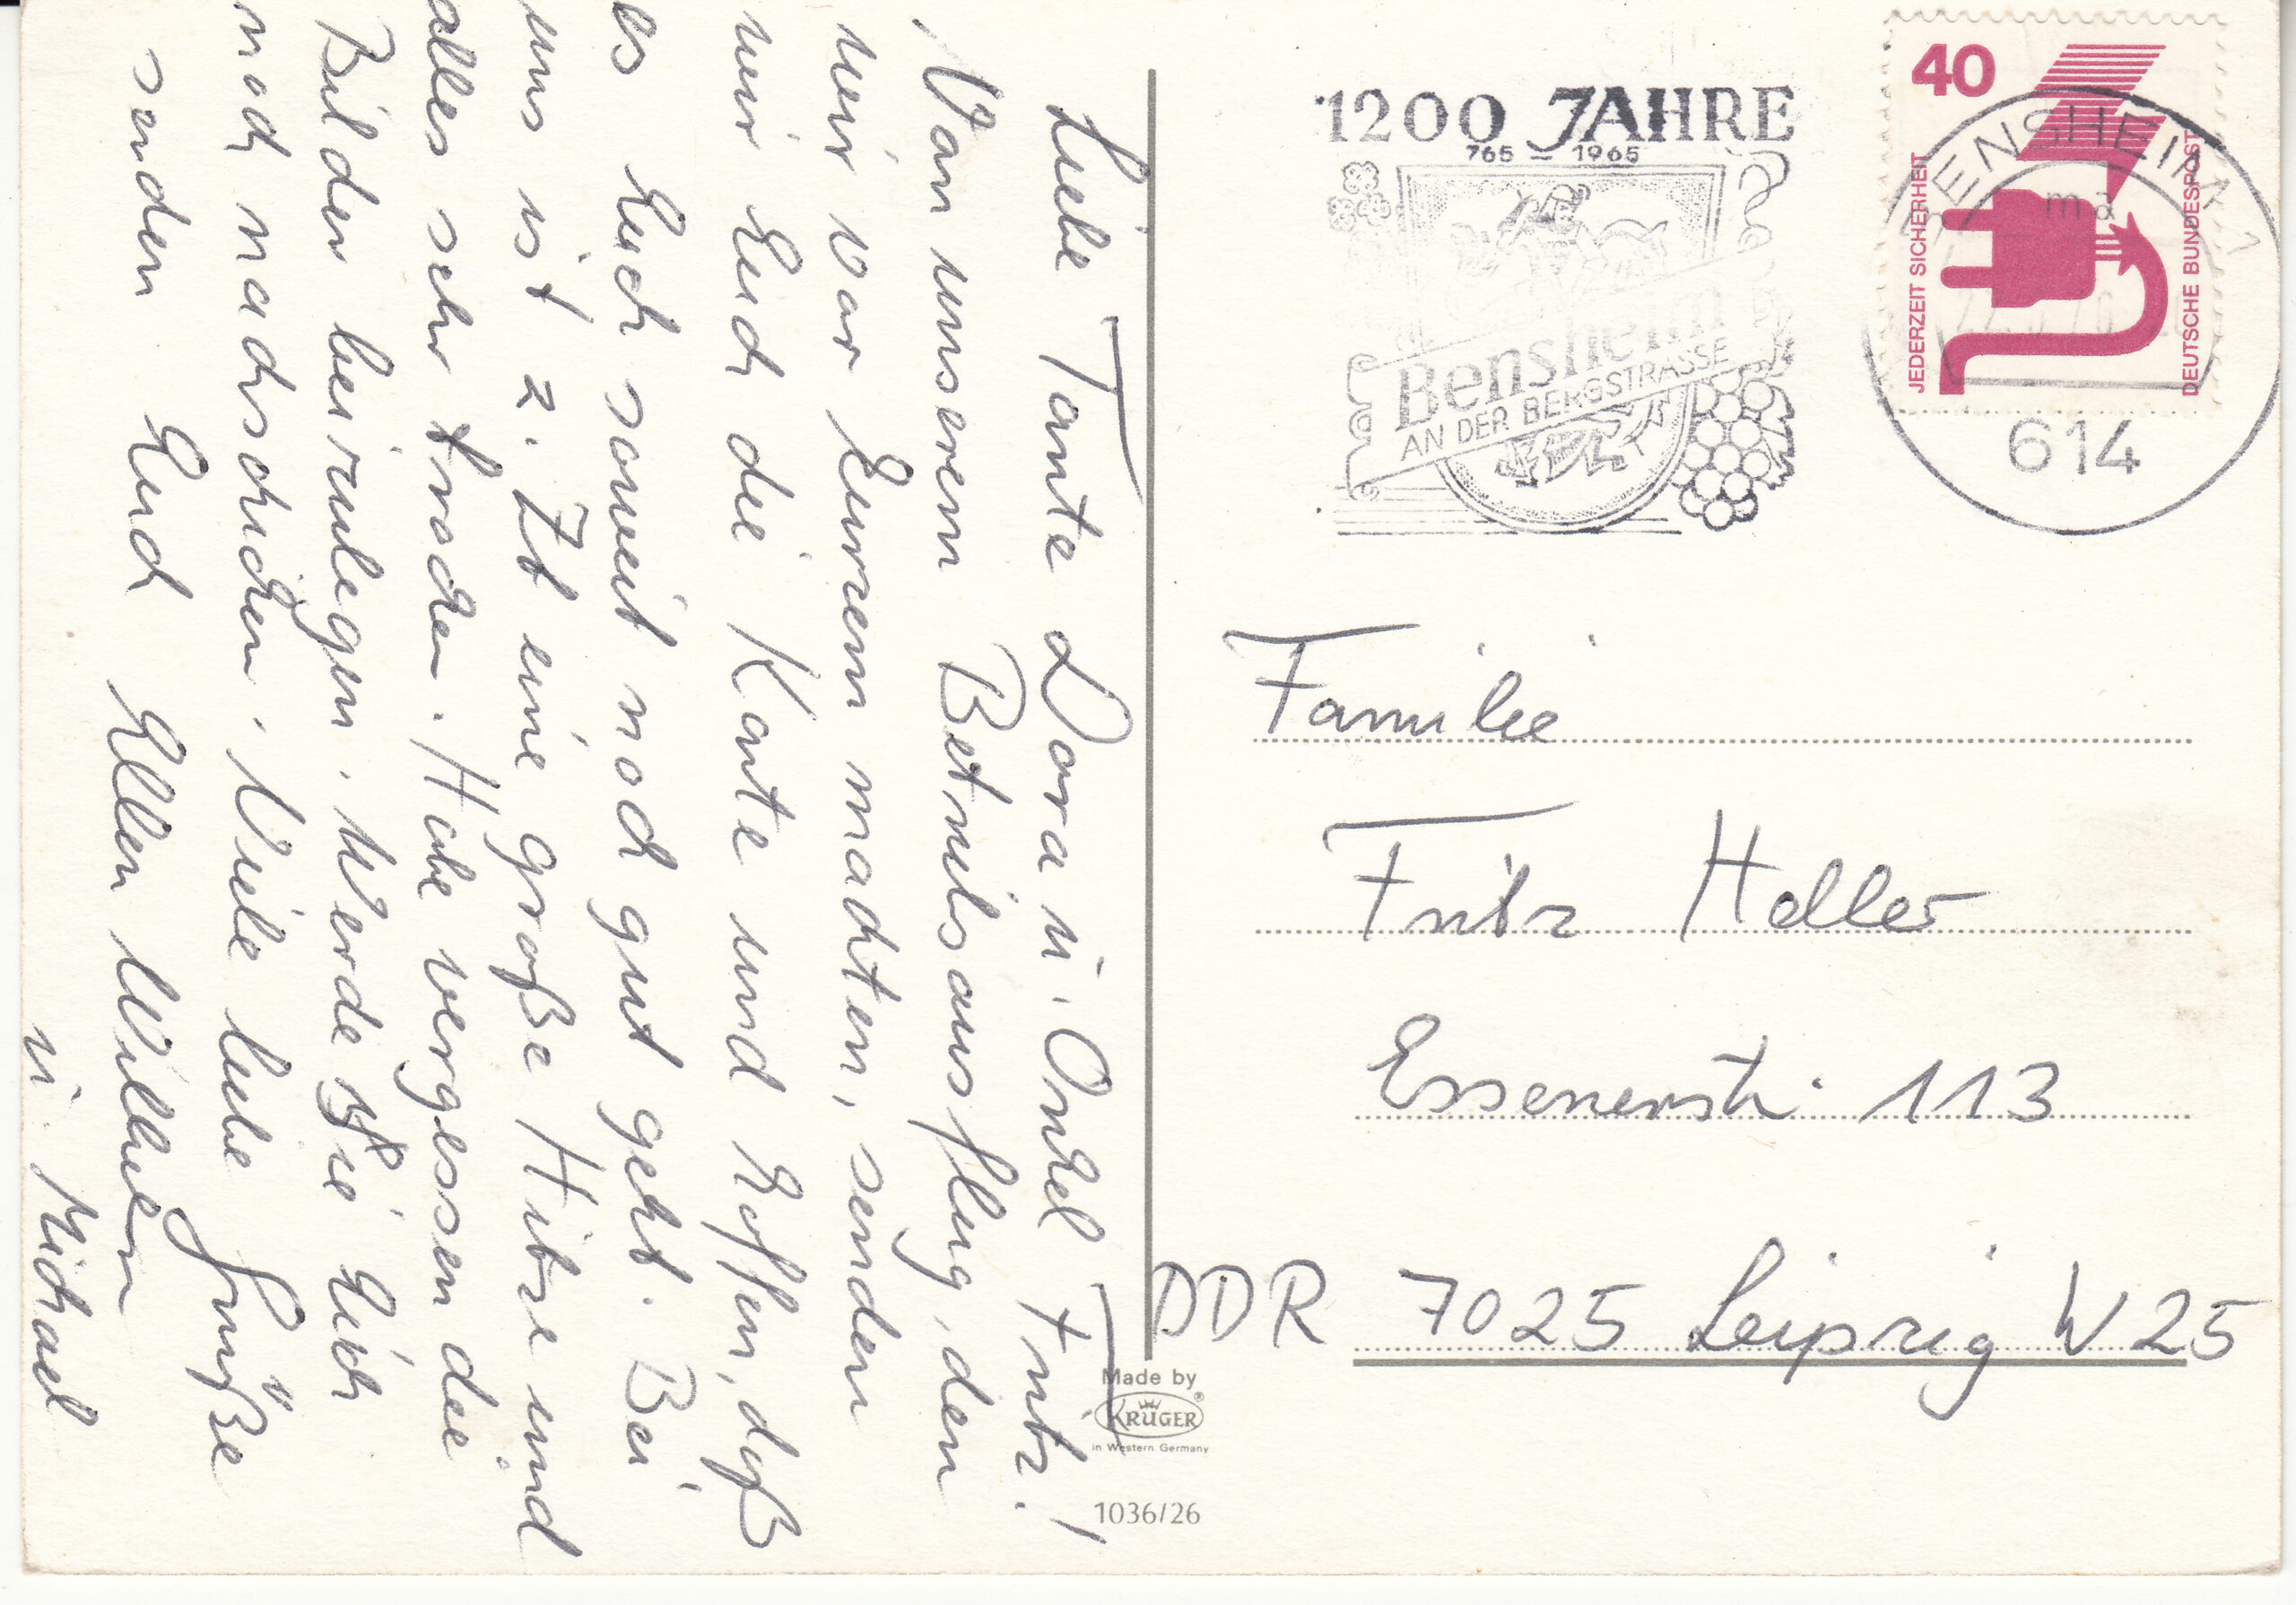 Liebe Tante Dora u. Onkel Fritz!
Von unserem Betriebsausflug, den
wir vor Kurzem machten, senden
wir Euch die Karte und hoffen, daß
es Euch soweit noch gut geht. Bei
uns ist z. Zt eine große Hitze und
alles sehr trocken. Habe vergessen die
Bilder beizulegen. Werde sie Euch
noch nachschicken. Viele liebe Grüße
senden Euch Ellen Wilhelm
u. Michael
1200 JAHRE
765 – 1965
Bensheim
AN DER BERGSTRASSE
40
JEDERZEIT SICHERHEIT
DEUTSCHE BUNDESPOST
BENSHEIM 1
ma
614
Familie
Fritz Heller
Essenerstr. 113
DDR 7025 Leipzig W 25
Made by
KRÜGER
in Western Germany
1036/26